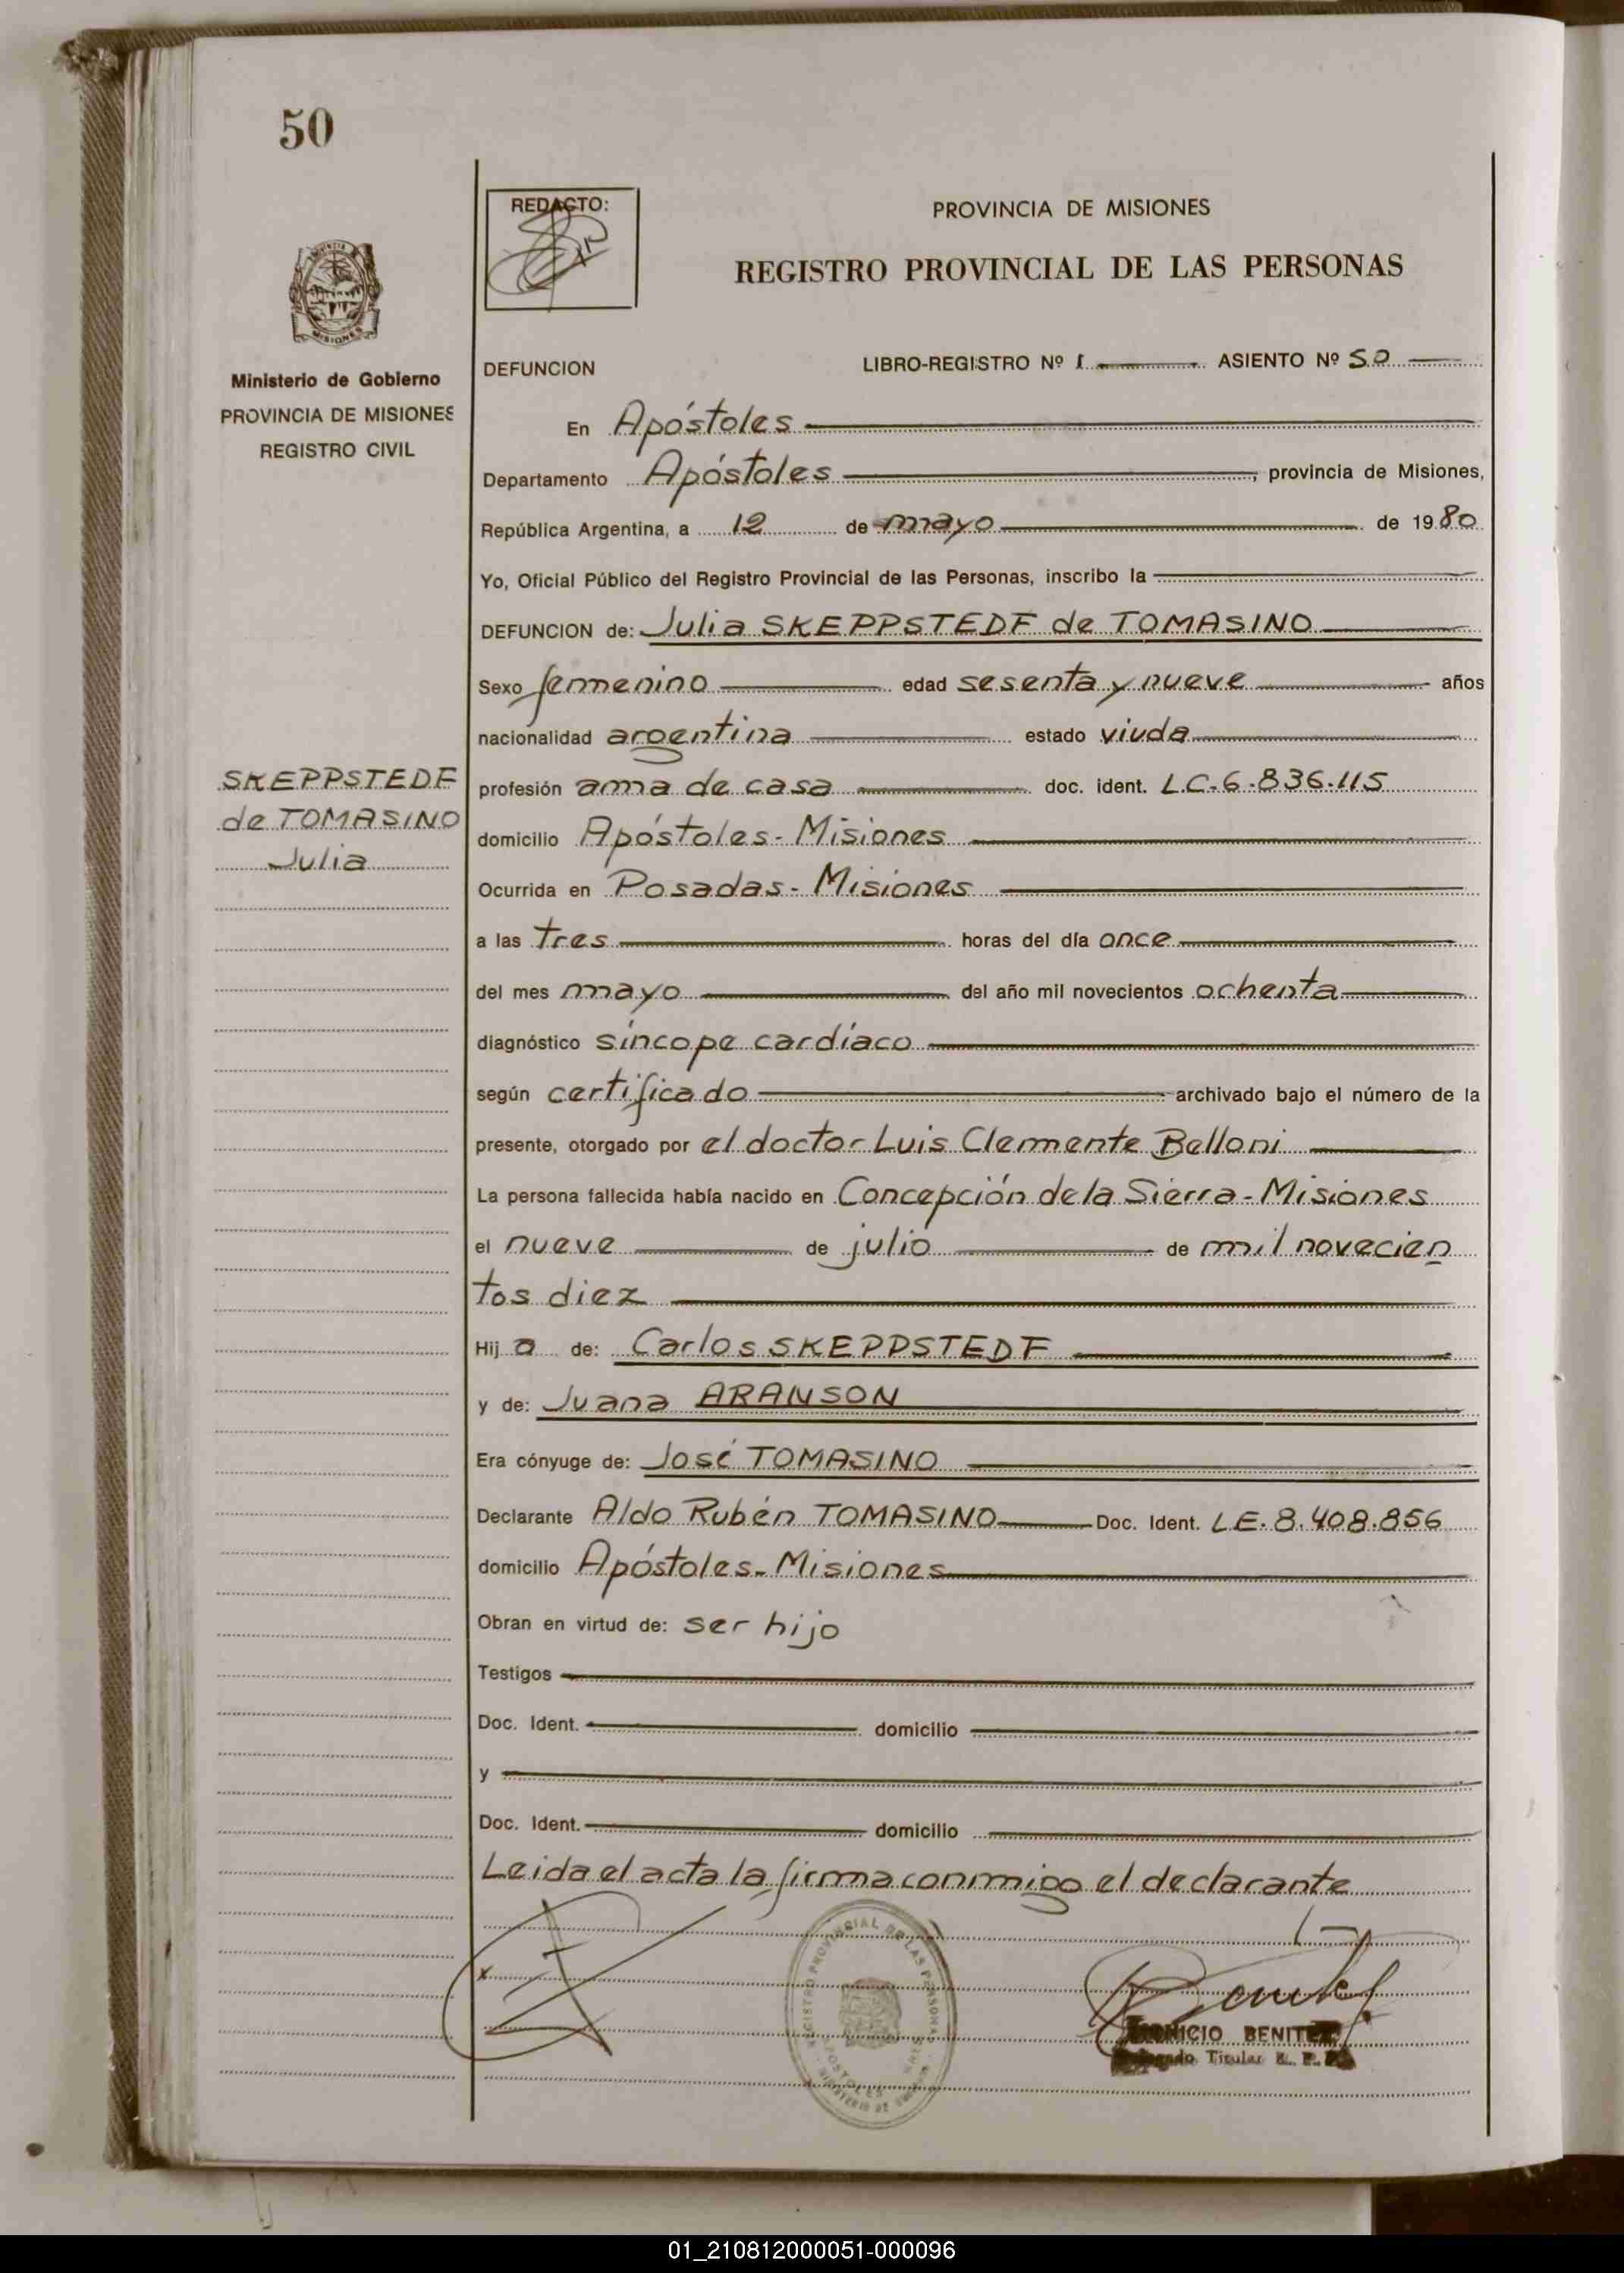 50
REDACTO:
PROVINCIA DE MISIONES
REGISTRO PROVINCIAL DE LAS PERSONAS
MISIONES
Ministerio de Gobierno
PROVINCIA DE MISIONES
REGISTRO CIVIL
DEFUNCION LIBRO-REGISTRO Nº 1 ASIENTO Nº 50
En Apóstoles
Departamento Apóstoles, provincia de Misiones,
República Argentina, a 12 de mayo de 1980
Yo, Oficial Público del Registro Provincial de las Personas, inscribo la
DEFUNCION de: Julia SKEPPSTEDF de TOMASINO
Sexo femenino edad sesenta y nueve años
nacionalidad argentina estado viuda
SKEPPSTEDF
de TOMASINO
Julia
profesión ama de casa doc. ident. L.C.6.836.115
domicilio Apóstoles-Misiones
Ocurrida en Posadas-Misiones
a las tres horas del día once
del mes mayo del año mil novecientos ochenta
diagnóstico síncope cardíaco
según certificado archivado bajo el número de la
presente, otorgado por el doctor Luis Clemente Belloni
La persona fallecida había nacido en Concepción de la Sierra-Misiones
el nueve de julio de mil novecien
tos diez
Hija de: Carlos SKEPPSTEDF
y de: Juana ARANSON
Era cónyuge de: José TOMASINO
Declarante Aldo Rubén TOMASINO Doc. Ident. L.E.8.408.856
domicilio Apóstoles-Misiones
Obran en virtud de: ser hijo
Testigos
Doc. Ident. domicilio
y
Doc. Ident. domicilio
Leida el acta la firma conmigo el declarante
REGISTRO PROVINCIAL DE LAS PERSONAS
APOSTOLES
BENITEZ
Titular
01_210812000051-000096